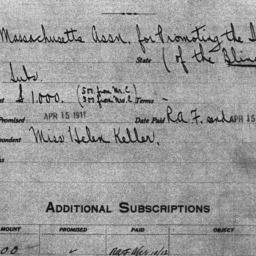 Massachusetts Assn. for Promoting the
State (of the Blind
Subs.
$1,000. (500 from Mr. C. 300 from Mrs. C.) Terms
Promised APR 15 1911 Date Paid R.A.F. APR 15
Miss Helen Keller.
ADDITIONAL SUBSCRIPTIONS
MOUNT PROMISED PAID OBJECT